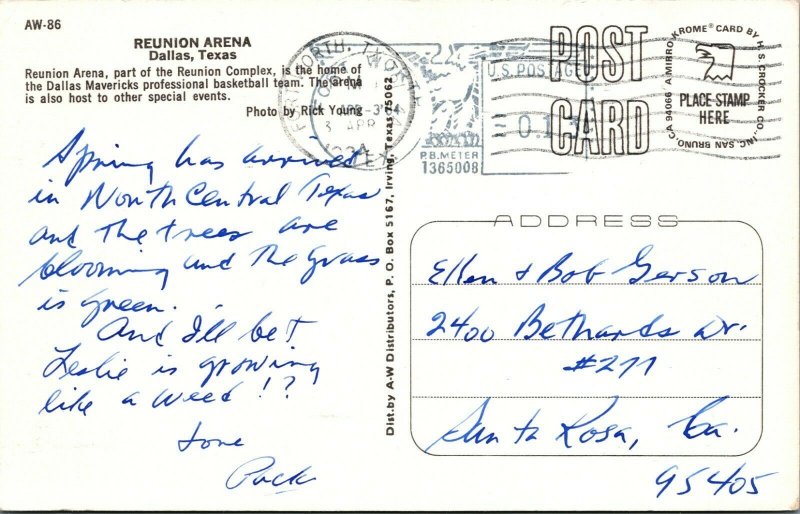 AW-86
REUNION ARENA
Dallas, Texas
Reunion Arena, part of the Reunion Complex, is the home of
the Dallas Mavericks professional basketball team. The arena
is also host to other special events.
Photo by Rick Young
Spring has arrived
in North Central Texas
and the trees are
blooming and the grass
is green.
And I'll bet
Leslie is growing
like a weed!?
Love
Dist.by A-W Distributors, P. O. Box 5167, Irving, Texas 75062
U.S. POSTAGE
P.B.METER
1365008
POST
CARD
A MIRRO-KROME® CARD BY H. S. CROCKER CO., INC. SAN BRUNO, CA 94066
PLACE STAMP
HERE
ADDRESS
Ellen & Bob Gerson
2400 Bethards Dr.
#277
Santa Rosa, Ca.
95405